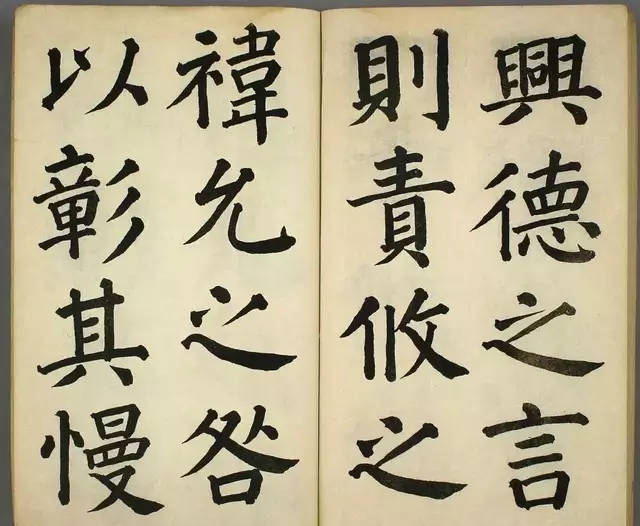 興德之言
則責攸之
禕允之咎
以彰其慢